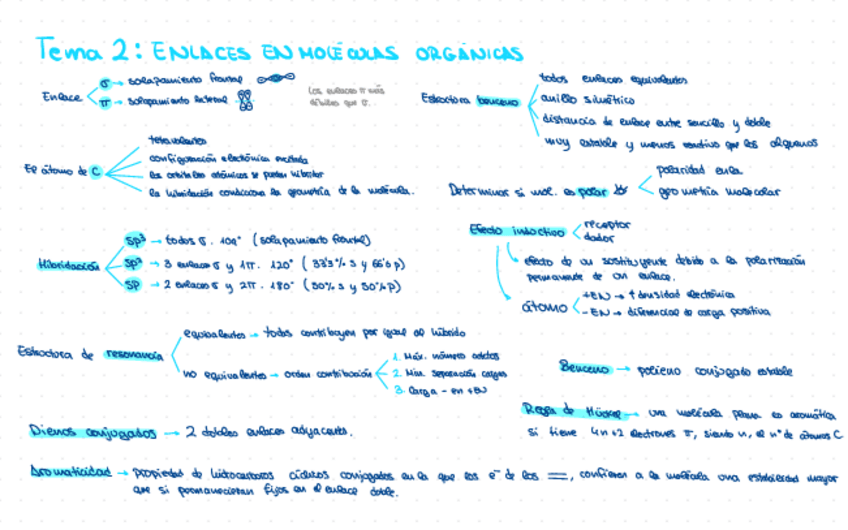 Tema 2: ENLACES EN MOLÉCULAS ORGÁNICAS
Enlace
σ → solapamiento frontal
π → solapamiento lateral
Los enlaces π más débiles que σ.
El átomo de C
tetravalentes
configuración electrónica excitada
los orbitales atómicos se pueden hibridar
la hibridación condiciona la geometría de la molécula.
Hibridación
sp³ → todos σ. 109° (solapamiento frontal)
sp² → 3 enlaces σ y 1π. 120° (33'3% s y 66'6 p)
sp → 2 enlaces σ y 2π. 180° (50% s y 50% p)
Estructura de resonancia
equivalentes → todas contribuyen por igual al híbrido
no equivalentes → orden contribución
1. Máx. número octetos
2. Min. separación cargas
3. Carga - en +EN
Dienos conjugados → 2 dobles enlaces adyacentes.
Aromaticidad → propiedad de hidrocarburos cíclicos conjugados en la que los e⁻ de los ══, confieren a la molécula una estabilidad mayor
que si permanecieran fijos en el enlace doble.
Estructura benceno
todos enlaces equivalentes
anillo simétrico
distancia de enlace entre sencillo y doble
muy estable y menos reactivo que los alquenos
Determinar si mol. es polar
polaridad enla.
geometría molecular
Efecto inductivo
receptor
dador
efecto de un sustituyente debido a la polarización
permanente de un enlace.
átomo
+EN → ↑ densidad electrónica
-EN → diferencial de carga positiva
Benceno → polieno conjugado estable
Regla de Hückel → una molécula plana es aromática
si tiene 4n+2 electrones π, siendo n, el nº de átomos C